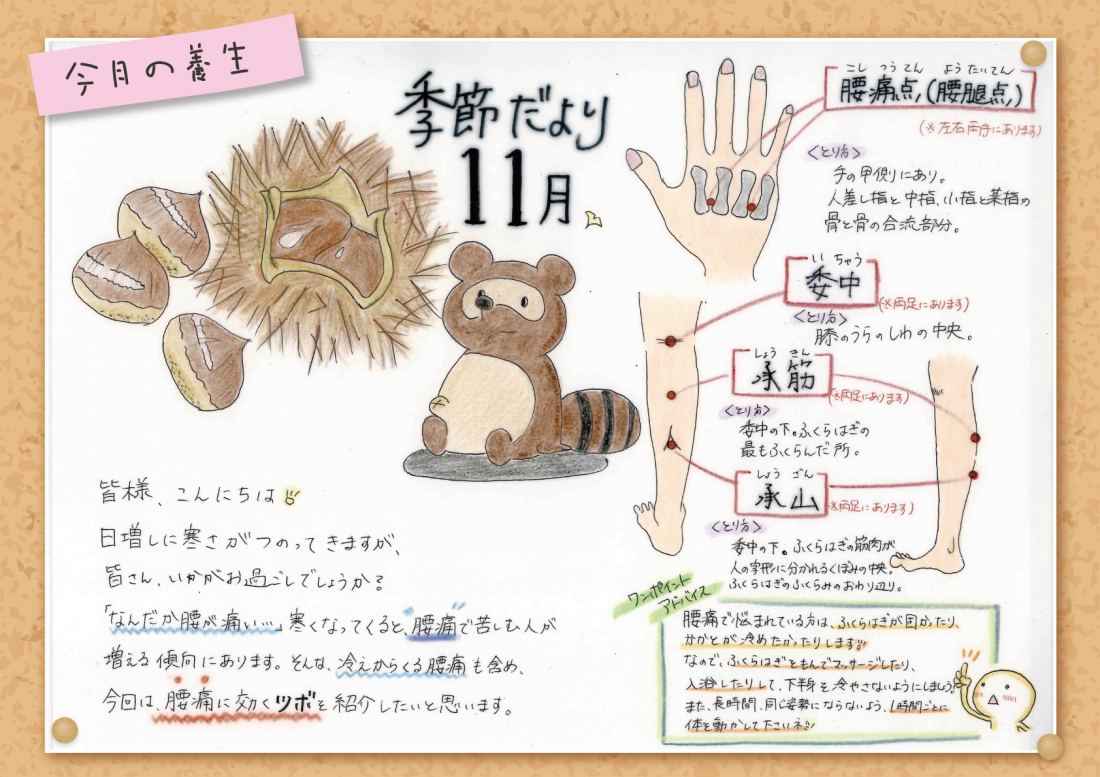 今月の養生
季節だより
11月
皆様、こんにちは
日増しに寒さがつのってきますが、
皆さん、いかがお過ごしでしょうか?
「なんだか腰が痛い…」寒くなってくると、腰痛で苦しむ人が
増える傾向にあります。そんな、冷えからくる腰痛も含め、
今回は、腰痛に効くツボを紹介したいと思います。
こし つう てん よう たい てん
腰痛点,(腰腿点,)
(※左右両手にあります)
<とり方>
手の甲側にあり。
人差し指と中指、小指と薬指の
骨と骨の合流部分。
い ちゅう
委中
(※両足にあります)
<とり方>
膝のうらのしわの中央。
しょう きん
承筋
(※両足にあります)
<とり方>
委中の下。ふくらはぎの
最もふくらんだ所。
しょう ざん
承山
(※両足にあります)
<とり方>
委中の下。ふくらはぎの筋肉が
人の字形に分かれるくぼみの中央。
ふくらはぎのふくらみのおわり辺り。
ワンポイント
アドバイス
腰痛で悩まれている方は、ふくらはぎが固かったり、
かかとが冷めたかったりします!!
なので、ふくらはぎをもんでマッサージしたり、
入浴したりして、下半身を冷やさないようにしましょう!
また、長時間、同じ姿勢にならないよう、1時間ごとに
体を動かして下さいネ!!